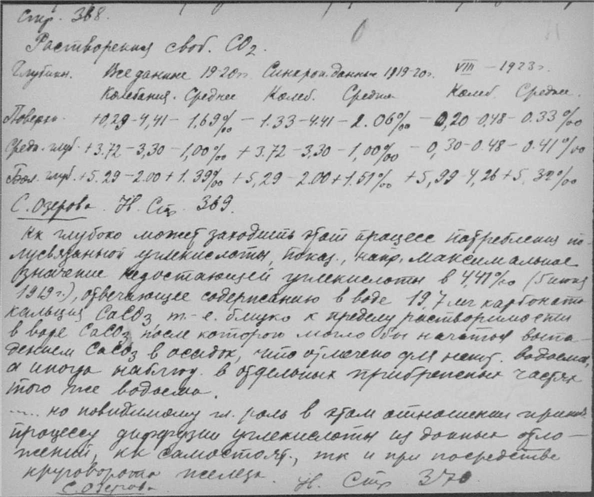 Стр. 368.
Растворения своб. CO2.
Глубины. Все данные 1920 г. Синхрон. данные 1919-20 г. VIII – 1923 г.
Колебания. Среднее Колеб. Средн. Колеб. Средн.
Поверхн. +0,29 – 4,41 – 1,69‰ – 1.33 – 4.41 – 2.06‰ – 0,20 0,48 – 0.33‰
Средн. глуб. +3.72 – 3,30 – 1,00‰ + 3.72 – 3,30 – 1,00‰ – 0,30 – 0.48 – 0.41‰
глуб. +5,29 – 2.00 + 1.39‰ +5,29 – 2.00 + 1.51‰ + 5,99 4,26 + 5,32‰
С. Озерова. Н. Стр. 369.
Кк глубоко может заходить этот процесс потребления по-
лусвязанной углекислоты, показ., напр. максимальное
значение недостающей углекислоты в 4,41‰ (5 июня
1919 г.), отвечающее содержанию в воде 19,7 мг карбоната
кальция CaCO3 т.-е. близко к пределу растворимости
в воде CaCO3, после которого могло бы начаться выпа-
дением CaCO3 в осадок, что отмечено для водоема,
а иногда наблюд. в отдельных прибрежных частях
того же водоема.
.... но повидимому гл. роль в этом отношении
процессу диффузии углекислоты из донных отло-
жений, кк самостоят., тк и при посредстве
круговорота железа.
С Озерова Н. Стр 370.